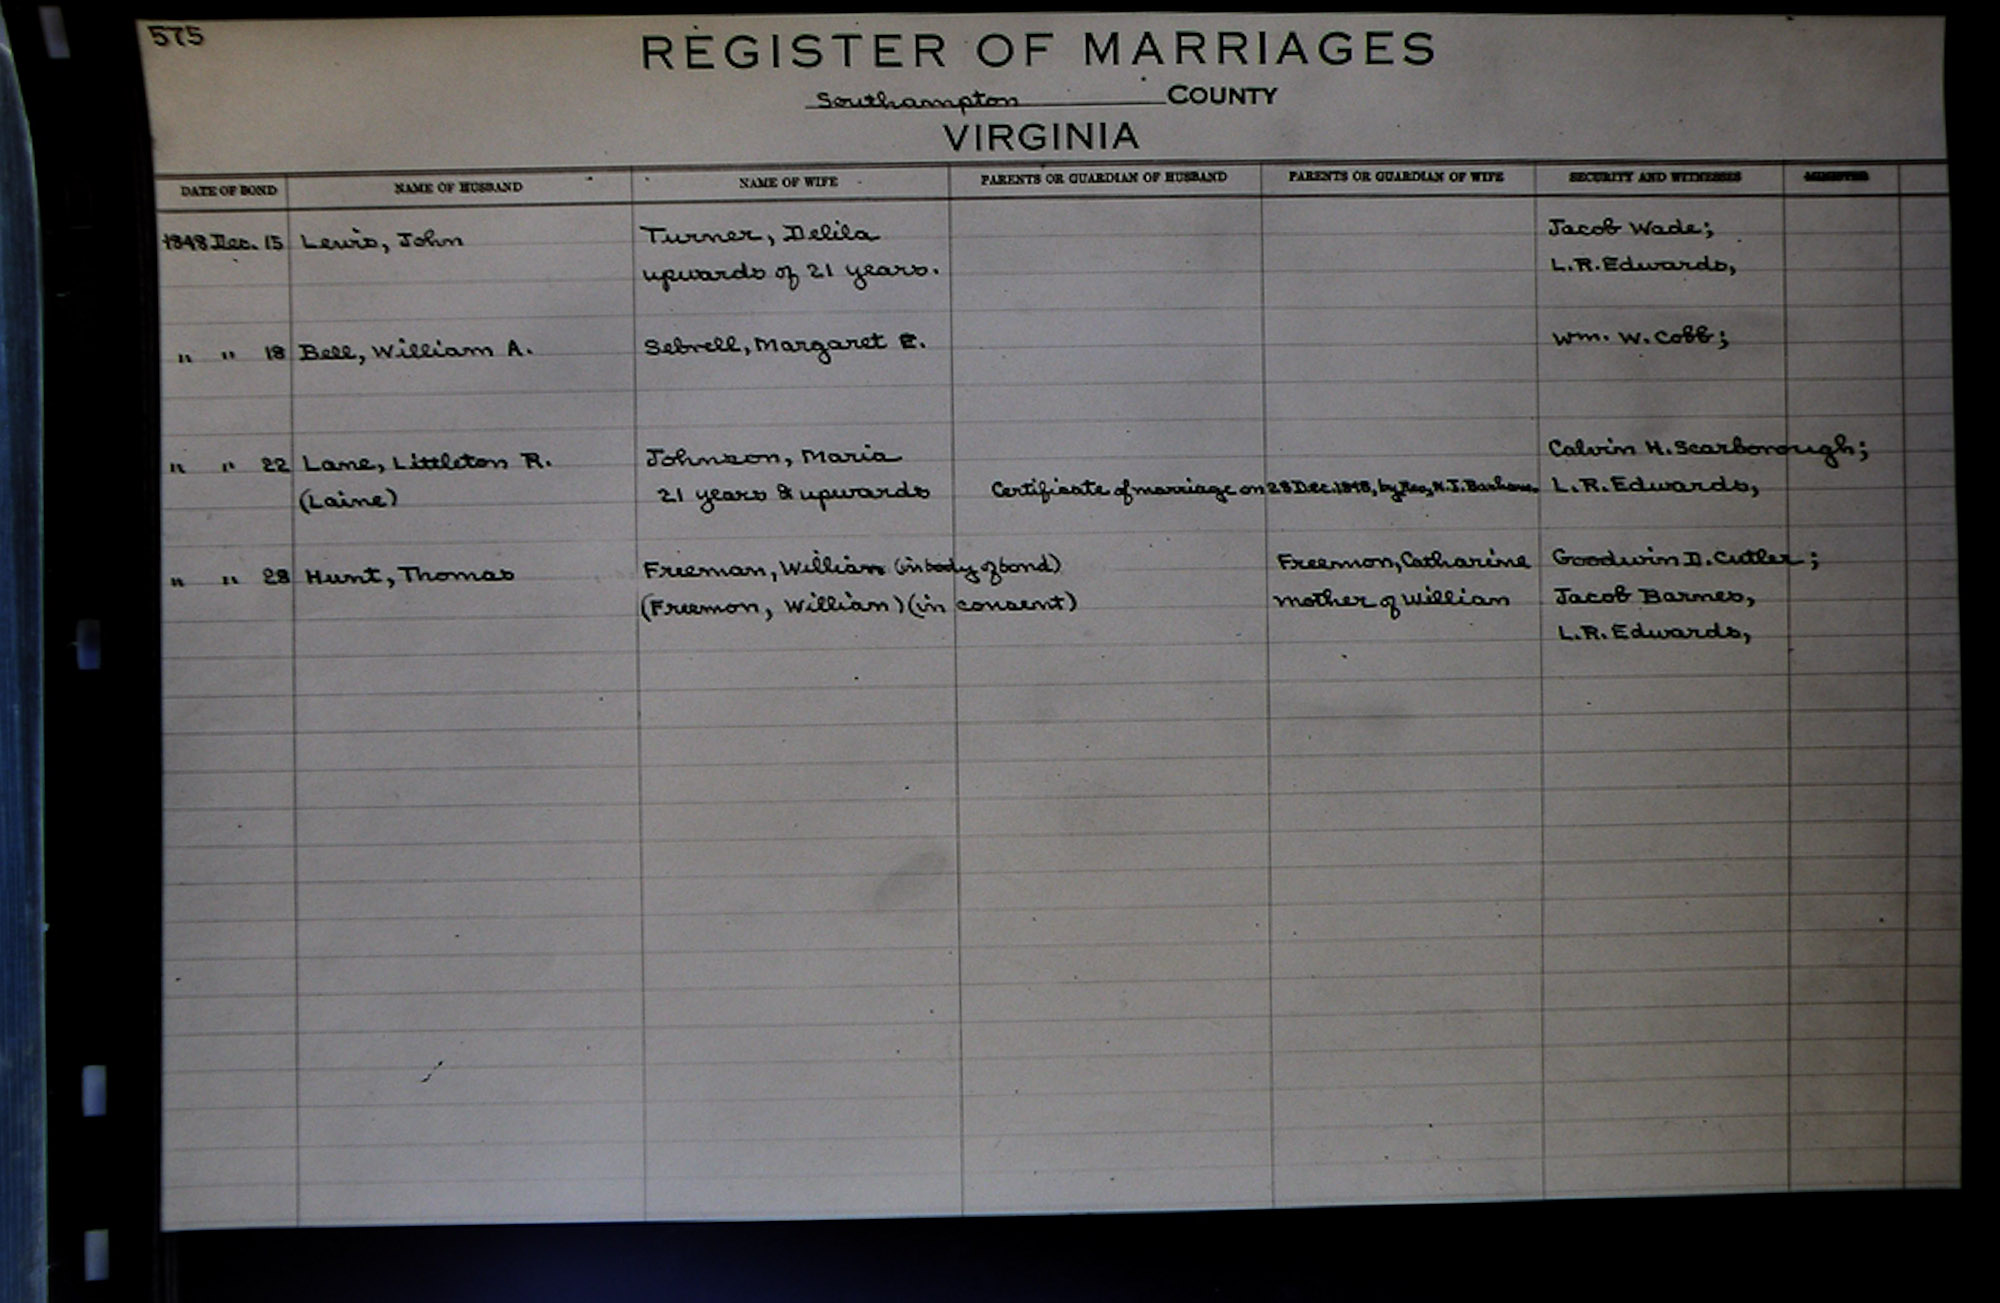 575
REGISTER OF MARRIAGES
Southampton COUNTY
VIRGINIA
DATE OF BOND NAME OF HUSBAND NAME OF WIFE PARENTS OR GUARDIAN OF HUSBAND PARENTS OR GUARDIAN OF WIFE SECURITY AND WITNESSES MINISTER
1848 Dec. 15 Lewis, John Turner, Delila Jacob Wade;
upwards of 21 years. L.R. Edwards,
" " 18 Bell, William A. Sebrell, Margaret E. Wm. W. Cobb;
" " 22 Lane, Littleton R. Johnson, Maria Calvin H. Scarborough;
(Laine) 21 years & upwards Certificate of marriage on 28 Dec. 1848, by Rev, N.J. Barham. L.R. Edwards,
" " 28 Hunt, Thomas Freeman, William (in body of bond) Freemon, Catharine Goodwin D. Cutler;
(Freemon, William) (in consent) mother of William Jacob Barnes,
L.R. Edwards,